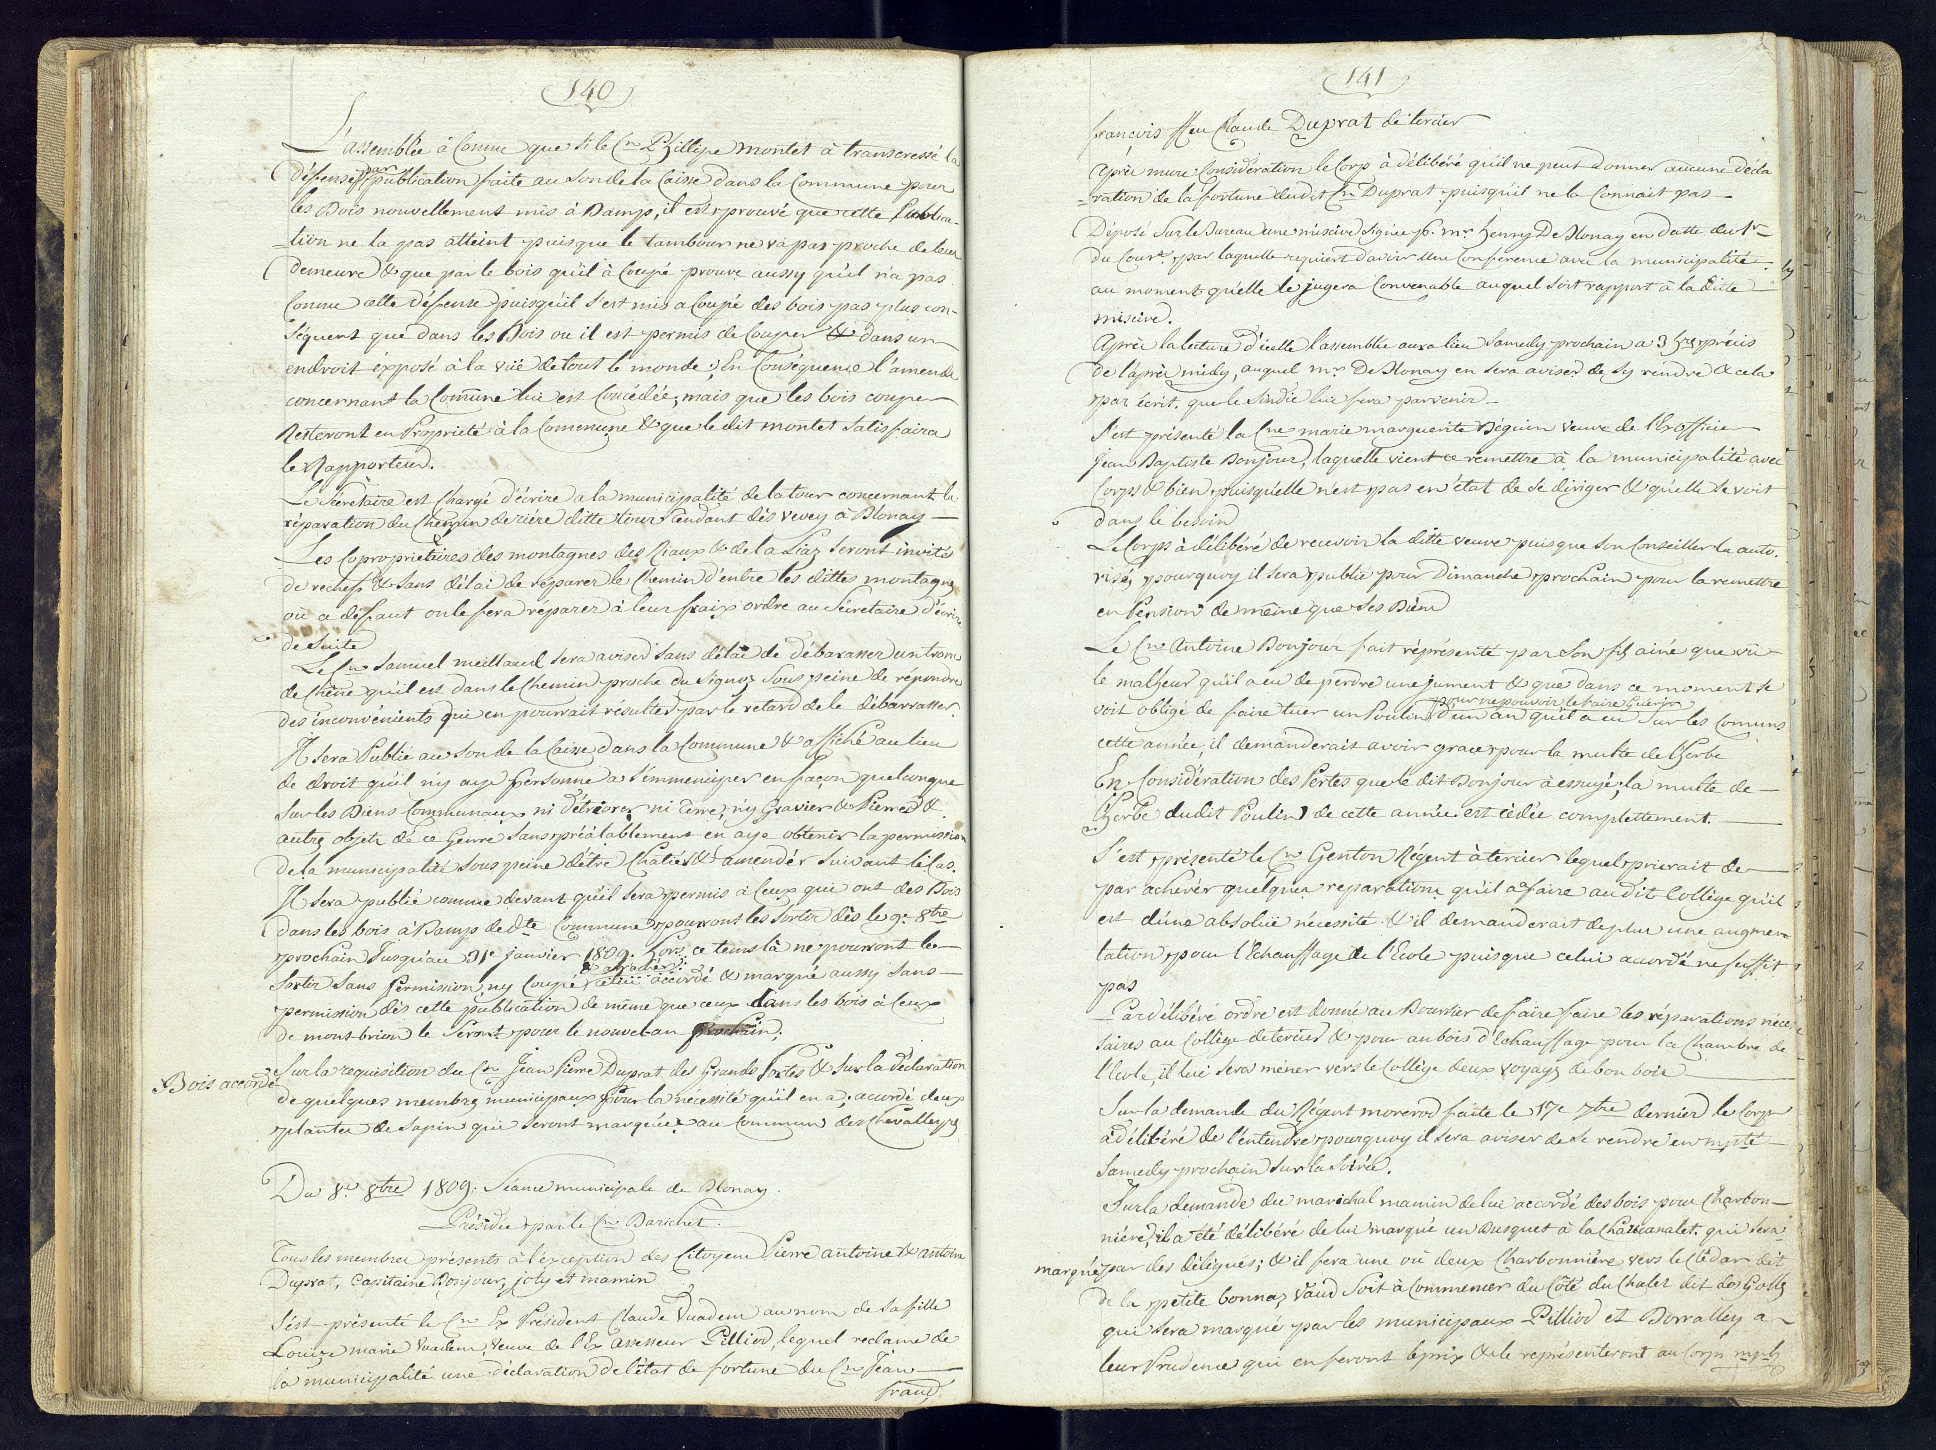 140
L'assemblée à Connu que si le Cn Phillipe montet à transcressé la
défense par publication faite au son de la Caisse dans la Commune pour
les Bois nouvellement mis à Bamps, il est prouvé que cette Publica-
-tion ne la pas atteint puisque le tambour ne và pas proche de leur
demeure & que par le bois qu'il à Coupé prouve aussy qu'il n'a pas
Connu cette défense puisqu'il s'est mis a Coupé des bois pas plus con-
séquent que dans les Bois ou il est permis de Couper & dans un
endroit éxposé à la vuë de tout le monde; En Conséquence l'amende
concernant la Comūne lui est Concédée, mais que les bois couper
Resteront en Propriété à la Commune & que le dit montet satisfaira
le Rapporteur.
Le Sécretaire est Chargé d'écrire a la municipalité de la tour concernant la
réparation du Chemin deriére ditte tour tendant dès vevey à Blonay
Les Coproprietaires des montagnes des Riaux & de la Liaz seront invité
de rechefs & sans délai de réparer le Chemin d'entre les dittes montagnes
où a deffaut on le fera réparer à leur fraix ordre au Sécretaire d'écrire
de suite
Le Cn Samuel meillaud sera aviser sans délai de débarasser un tronc
de Chêne qu'il est dans le Chemin proche du Signoz sous peine de répondre
des inconvénients qui en pourrait résulter par le retard de le débarrasser.
Il sera Publié au son de la Caisse dans la Commune & affiché au lieu
de droit qu'il n'y aye personne a s'immenicer en façon quelconque
sur les Biens Communaux ni détriorer ni terre, n'y Gravier & Pierres &
autre objets de ce Genre sans préálablement en aye obtenir la permission
de la municipalité sous peine d'être Chatiés & amendér suivant le Cas.
Il sera publié comme devant qu'il sera permis à Ceux qui ont des Bois
dans les bois à Bamps de dte Commune pourront les sortir dès le 9e 8bre
prochain Jusqu'au 31e janvier 1809. hors ce tems là ne pourront le
sortir sans Permission, ny Coupé & arrachér celui accordé & marqué aussy sans
permission dès cette publication de même que ceux dans les bois à Ceux
de mont brion le seront pour le nouvel an prochain.
Bois accordé
Sur la requisition du Cn Jean Pierre Duprat des Grands Portes & sur la déclaration
de quelques membres municipaux Pour la nécessité qu'il en a; accordé deux
plantes de sapin qui seront marquées au Commun des Chevalleyres
Du 8e 8bre 1809. Séance municipale de Blonay.
Présidée par le Cn Barichet.
Tous les membres présents à l'exception des Citoyens Pierre antoine & antoine
Duprat, Capitaine Bonjour, joly et mamin
S'est présenté le Cn Ex Président Claude Vuadens au nom de sa fille
Louize marie vuadens, veuve de l'Ex assesseur Pilliod, lequel reclame de
la municipalité une déclaration de l'état de fortune du Cn Jean
franç
141
françois ffeu Claude Duprat de tercier
Après mure Considération le Corp à délibéré qu'il ne peut donner aucune décla
-ration de la fortune dudit Cn Duprat puisqu'il ne la Connait pas
Déposé sur le Bureau une missive signée p. mr henry De Blonay en datte du 1r
du Court par laquelle requiert d'avoir une Conférence avec la municipalité
au moment qu'elle le jugera Convenable auquel soit rapport à la ditte
missive.
Après la lecture d'icelle l'assemblée aura lieu samedy prochain a 3 hres précis
de l'après midy, auquel mr De Blonay en sera aviser de s'y rendre & cela
par écrit que le sindic lui fera parvenir
S'est présenté la Cne marie marguerite Béguin veuve de l'Ex officier
Jean Baptiste Bonjour, laquelle vient se remettre à la municipalité avec
Corps & bien puisqu'elle n'est pas en état de se diriger & qu'elle se voit
dans le besoin
Le Corps à délibéré de recevoir la ditte veuve puisque son Conseiller la auto-
risé, pourquoy il sera publié pour Dimanche prochain pour la remettre
en Pension de même que ses Biens
Le Cn Antoine Bonjour fait réprésenté par son fils ainé que vû
le malheur qu'il a eu de perdre une jument & que dans ce moment se
voit obligé de faire tuer un Poulin pour ne pouvoir le faire Guérir d'un an qu'il a eu sur les Comuns
cette année, il demanderait avoir grace pour la multe de l'herbe
En Considération des Pertes que le dit Bonjour à essuyé; la multe de
l'herbe dudit Poulin de cette année est cédée complettement.
S'est présenté le Cn Genton Régent à tercier lequel prierait de
par achevér quelques reparations qu'il a à faire audit Collège qu'il
est d'une absolue nécessité & il demanderait de plus une augmen
tation pour l'Echauffage de l'Ecole puisque celui accordé ne suffit
pas
Par délibéré ordre est donné au Boursier de faire faire les réparations néces
saires au Collège de tercier & pour au bois d'Echauffage pour la Chambre de
l'Ecole, il lui sera mener vers le Collège deux voyages de bon bois
Sur la demande du Régent morerod faite le 17e 7bre dernier le Corps
à délibéré de l'entendre pourquoy il sera aviser de se rendre en mplté
samedy prochain sur la soirée.
Sur la demande du marichal mamin de lui accordé des bois pour Charbon-
niére, il a été délibéré de lui marqué un Busquet à la Chaucanalet qui sera
marqué par des délégués; & il fera une où deux Charbonniére vers le Clédar dit
de la petite bonnaz vaud soit à Commencer du Côté du Chalet dit des Golls
qui sera marqué par les municipaux Pilliod et Borralley a
leur Prudence qui en feront le prix & le représenteront au Corps mpl